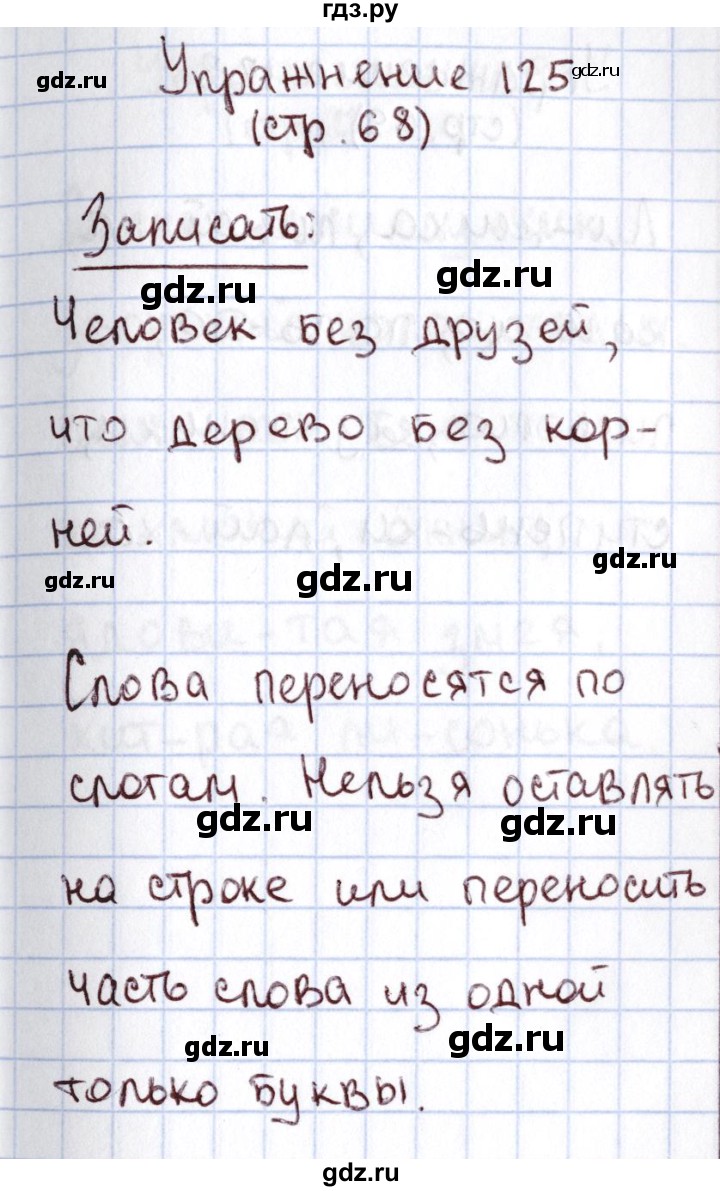 гдз.ру
Упражнение 125
gdz.ru
gdz.ru
(стр. 68)
Записать:
gdz.ru
gdz.ru
Человек без друзей,
что дерево без кор-
ней.
gdz.ru
gdz.ru
gdz.ru
Слова переносятся по
слогам. Нельзя оставлять
gdz.ru
gdz.ru
на строке или переносить
часть слова из одной
gdz.ru
gdz.ru
только буквы.
gdz.ru